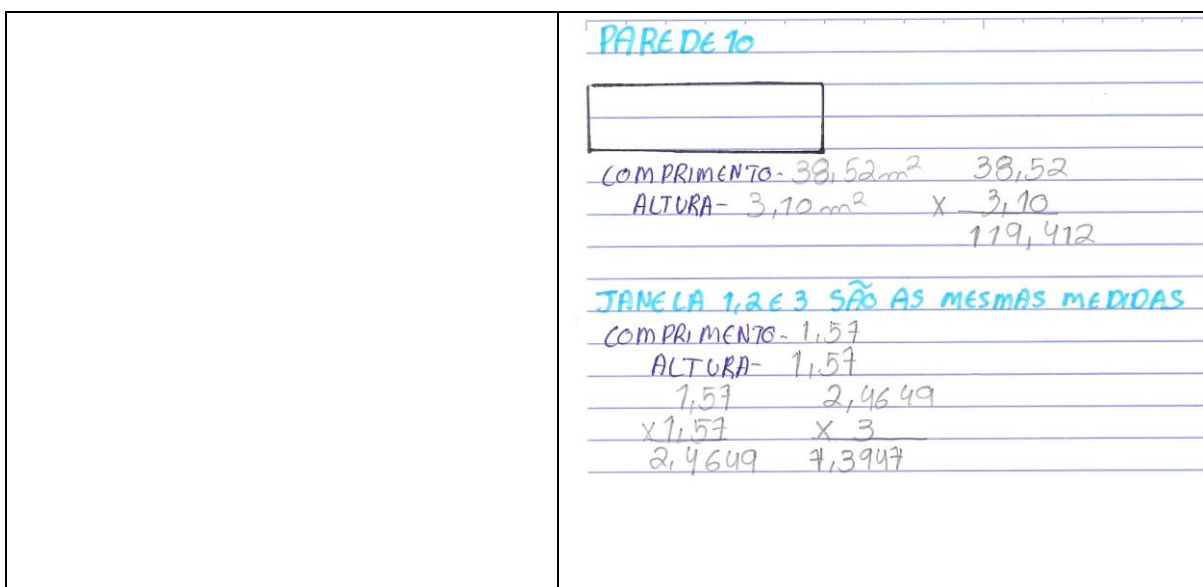 PAREDE 10
COMPRIMENTO - 38,52 m² 38,52
ALTURA - 3,10 m² X 3,10
119,412
JANELA 1,2 E 3 SÃO AS MESMAS MEDIDAS
COMPRIMENTO - 1,57
ALTURA - 1,57
1,57 2,4649
X 1,57 X 3
2,4649 7,3947